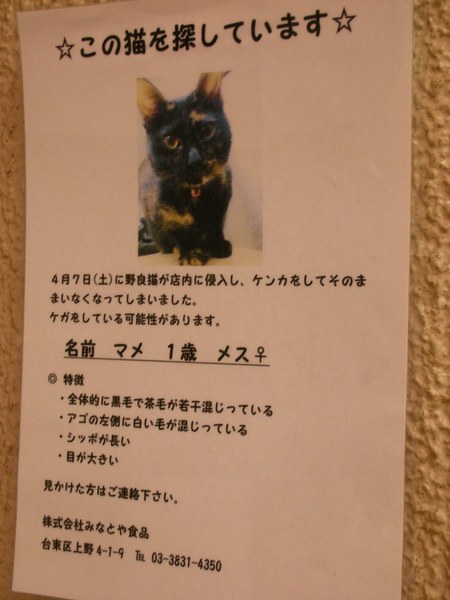 ☆この猫を探しています☆
4月7日(土)に野良猫が店内に侵入し、ケンカをしてそのま
まいなくなってしまいました。
ケガをしている可能性があります。
名前 マメ 1歳 メス♀
◎ 特徴
・全体的に黒毛で茶毛が若干混じっている
・アゴの左側に白い毛が混じっている
・シッポが長い
・目が大きい
見かけた方はご連絡下さい。
株式会社みなとや食品
台東区上野4-1-9 ℡ 03-3831-4350